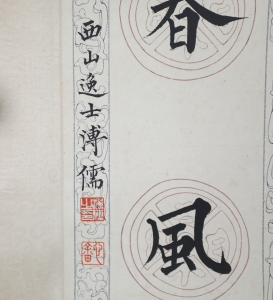 春風
西山逸士溥儒